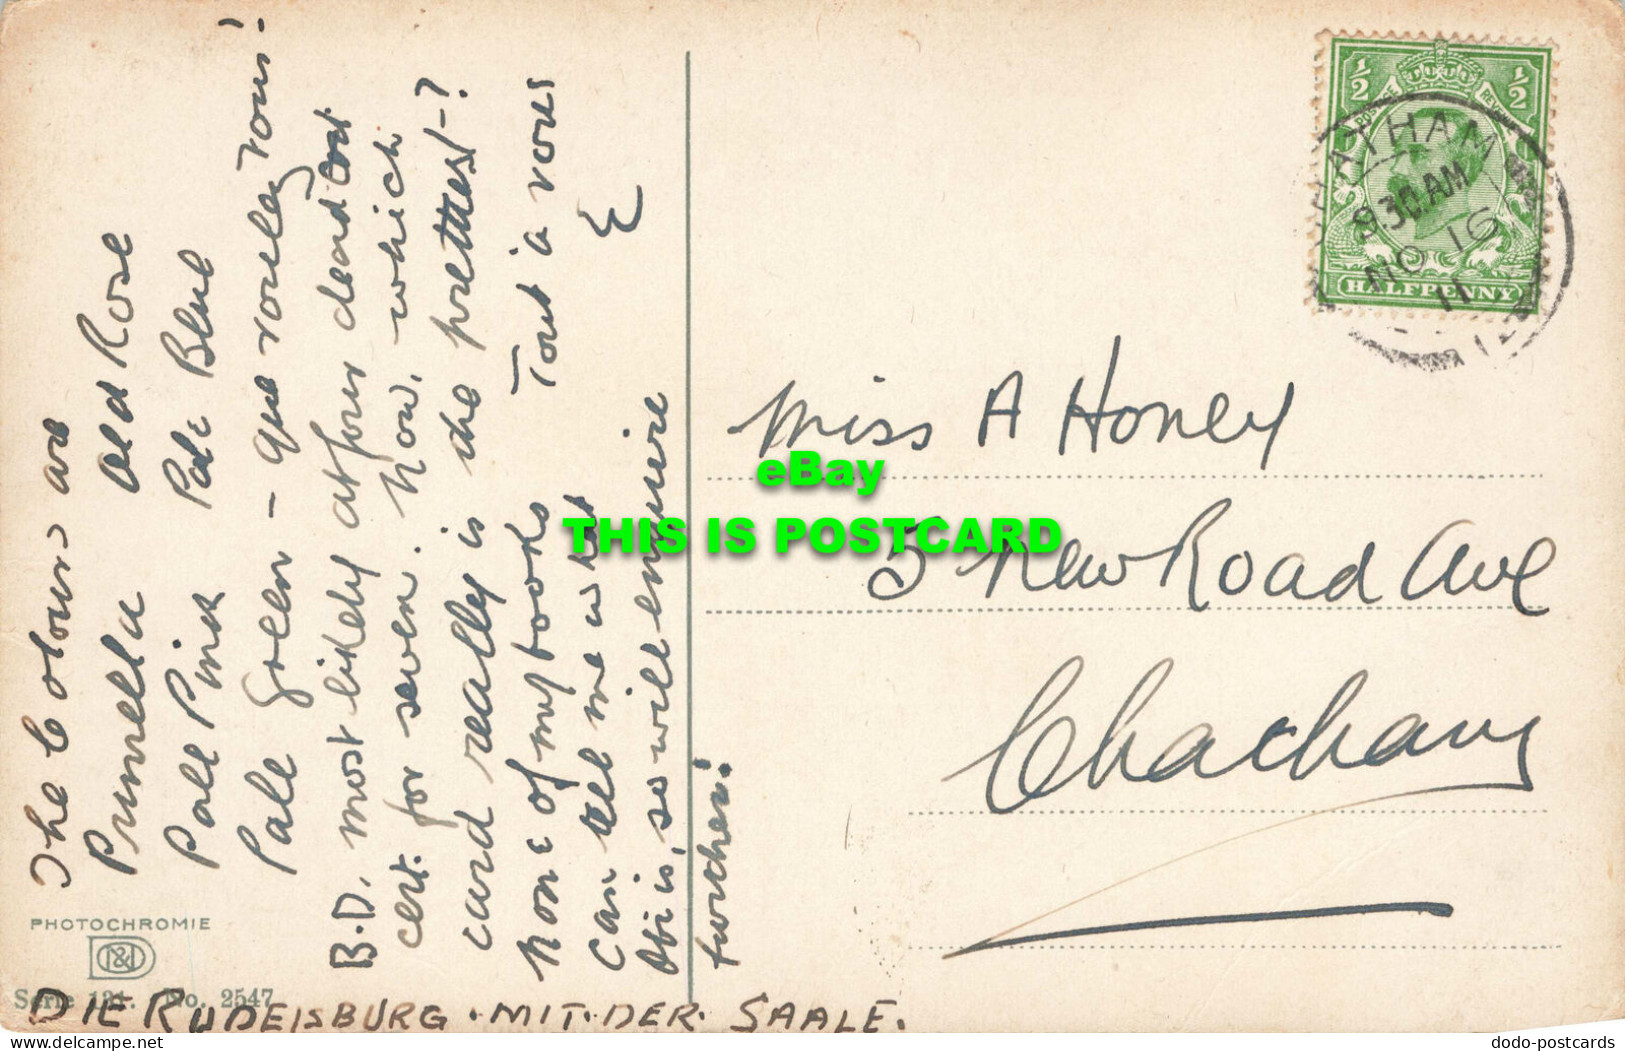 The Colours are
Prunella Old Rose
Pale Pink Pale Blue
Pale Green - que voulez vous!
B.D. most likely at four dead cert
cert. for seven. Now, which
card really is the prettiest-?
None of my books Tout à vous
can tell me what E
Obi is, so will enquire
further!
PHOTOCHROMIE
Serie 131. No. 2547
DIE RUDELSBURG . MIT . DER . SAALE .
½ ½
POSTAGE REVENUE
HALFPENNY
CHATHAM
9.30 AM
NO 16
11
Miss A Honey
5 New Road Ave
Chatham
eBay
THIS IS POSTCARD
www.delcampe.net
dodo-postcards